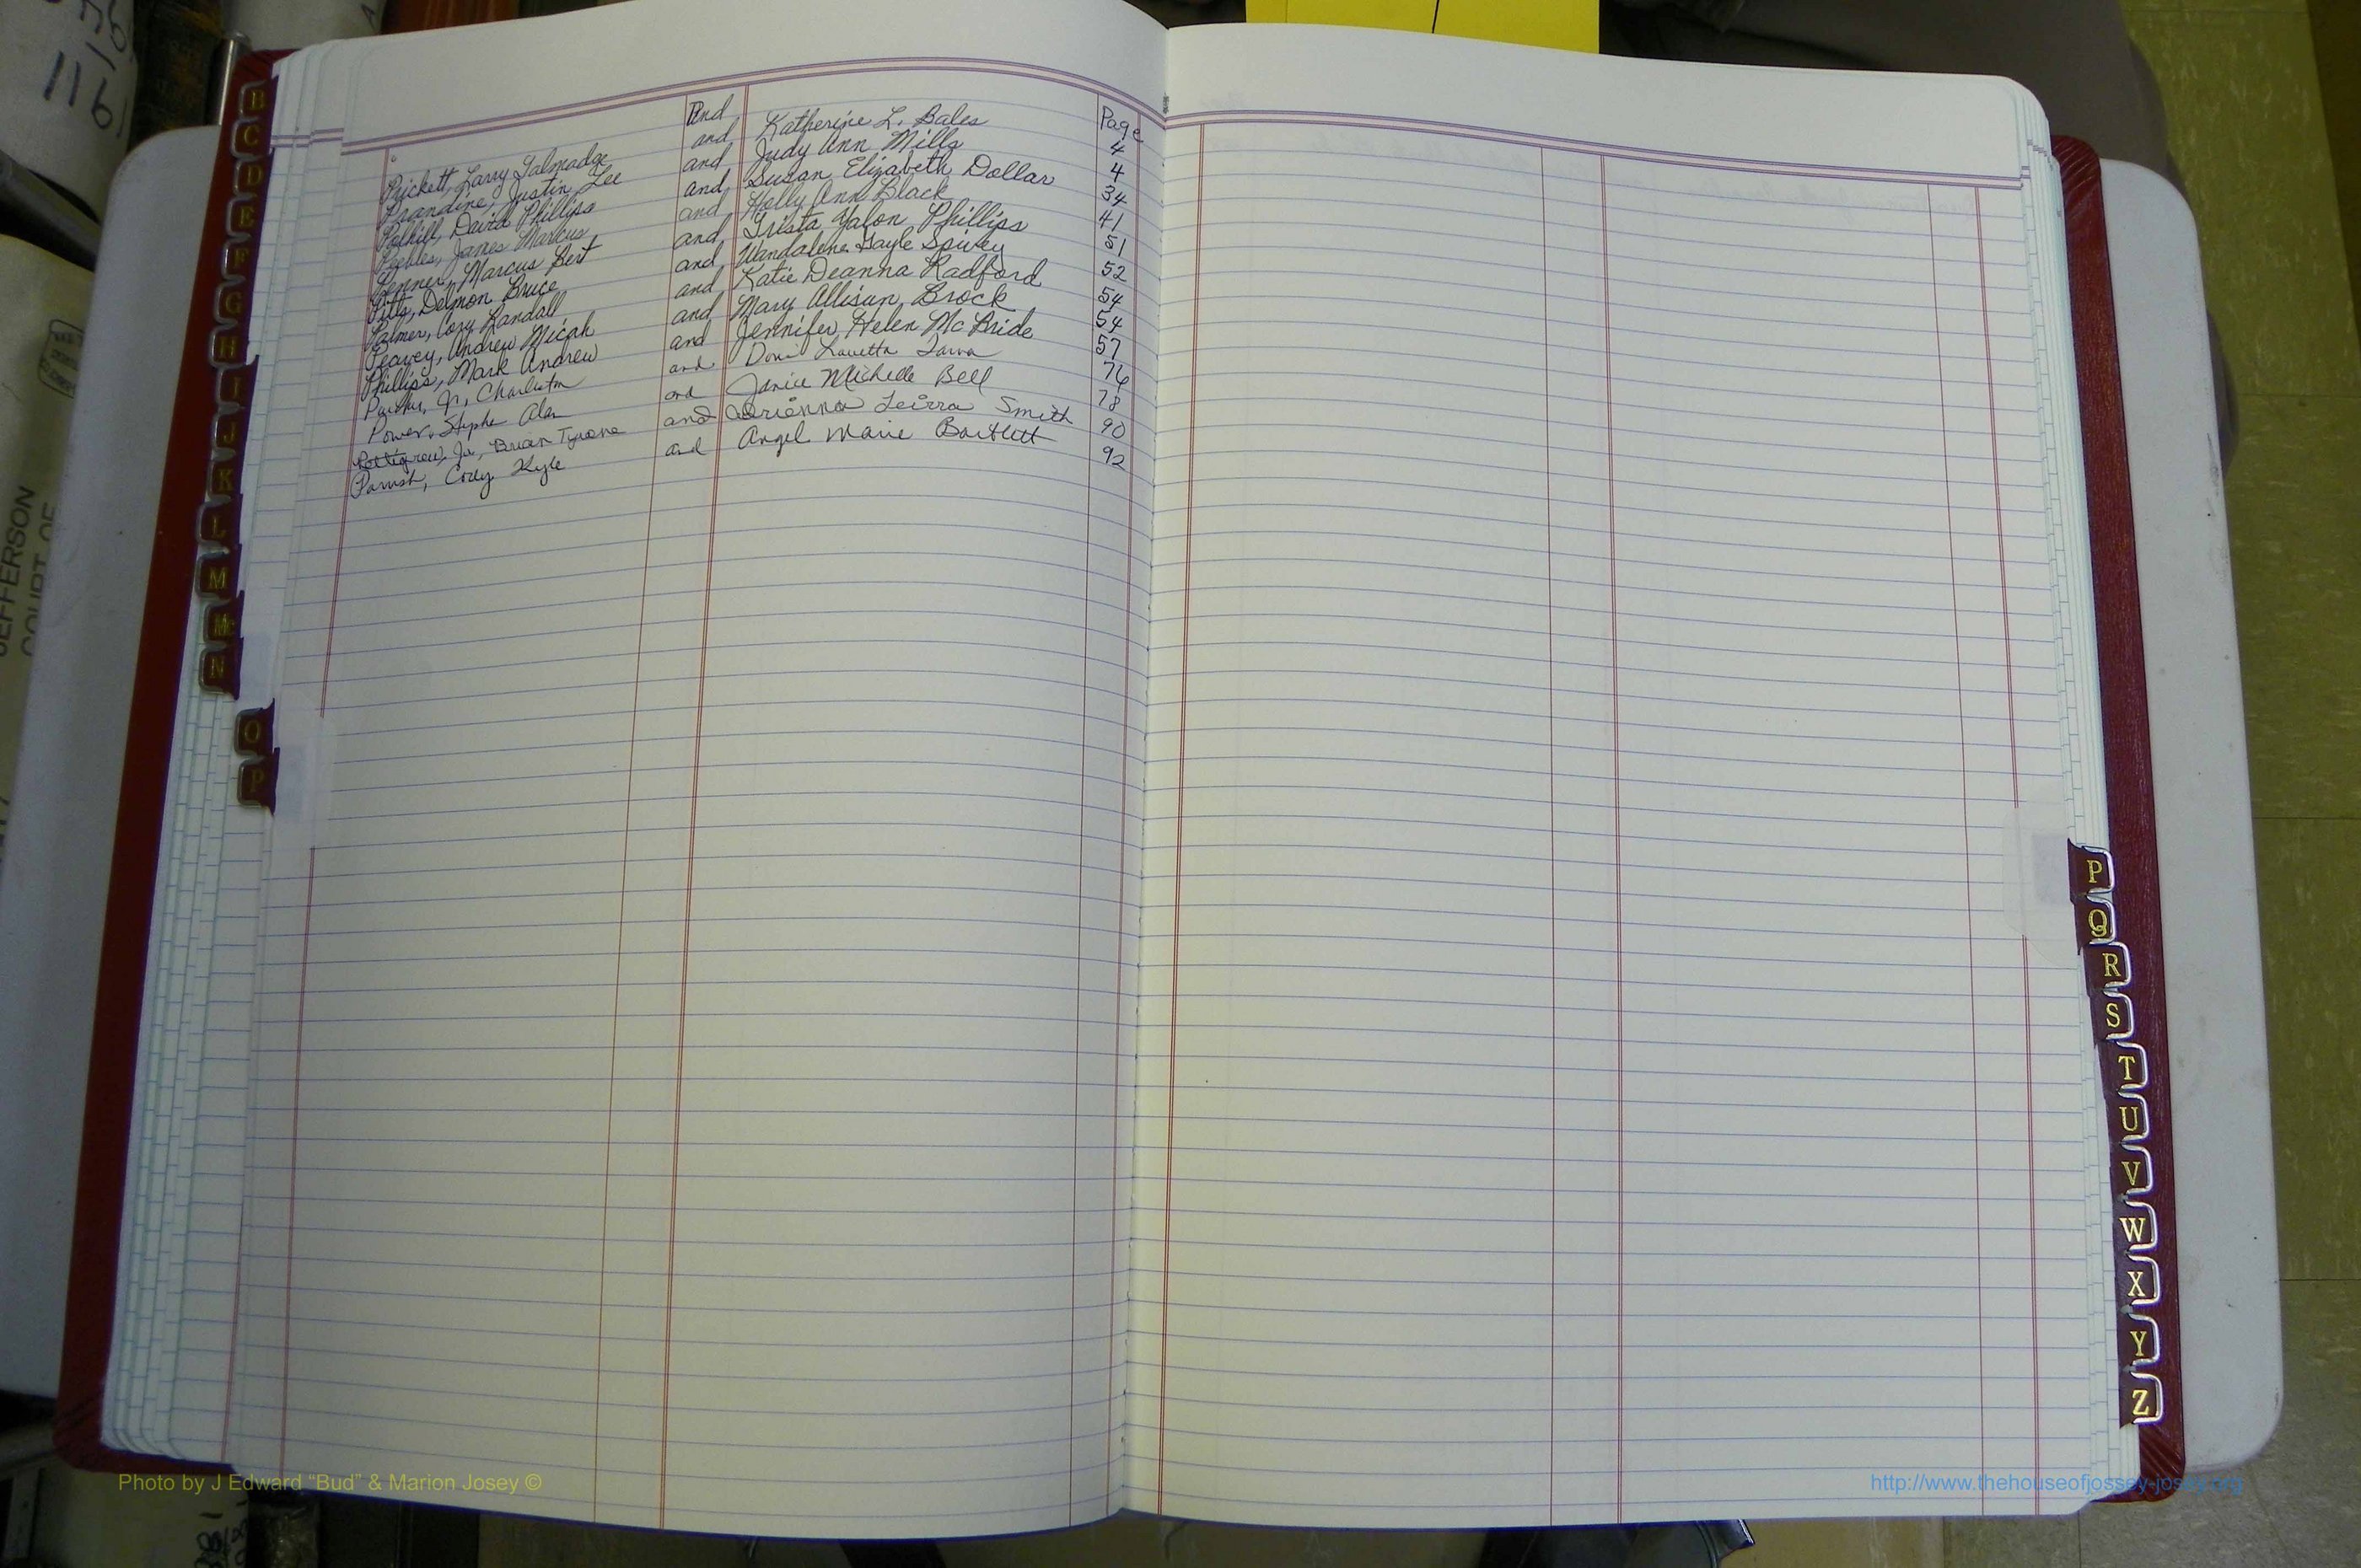 And Page
Prickett, Larry Talmadge and Katherine L. Bales 4
Justin Lee and Judy Ann Mills 4
Polhill, David Phillips and Susan Elizabeth Dollar 34
Peebles, James Marcus and Holly Ann Black 41
Penner, Marcus Bert and Trista Yalon Phillips 51
Pitts, Delmon Bruce and Wandalene Gayle Spivey 52
Palmer, Cory Randall and Katie Deanna Radford 54
Peavey, Andrew Micah and Mary Allison Brock 54
Phillips, Mark Andrew and Jennifer Helen McBride 57
Parker, Jr., Charleston and Lavetta 76
Power, Stephen Alan and Janice Michelle Bell 78
Pettigrew, Jr., Brian Tyrone and Smith 90
Parrish, Cody Kyle and Angel Marie Bartlett 92
B
C
D
E
F
G
H
I
J
K
L
M
Mc
N
O
P
P
Q
R
S
T
U
V
W
X
Y
Z
JEFFERSON
COURT OF
Photo by J Edward “Bud” & Marion Josey ©
http://www.thehouseofjossey-josey.org